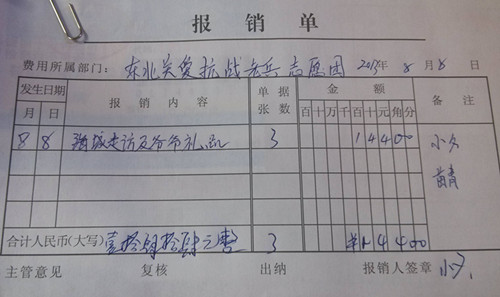 报销单
费用所属部门： 东北关爱抗战老兵志愿团 2013年 8 月 8 日
发生日期 报销内容 单据张数 金额 备注
月 日 百 十 万 千 百 十 元 角 分
8 8 走访及爷爷礼品 3 1 4 4 0 0 小
合计人民币(大写) 壹 拾肆元 3 ¥ 1 4 4 0 0
主管意见 复核 出纳 报销人签章 小